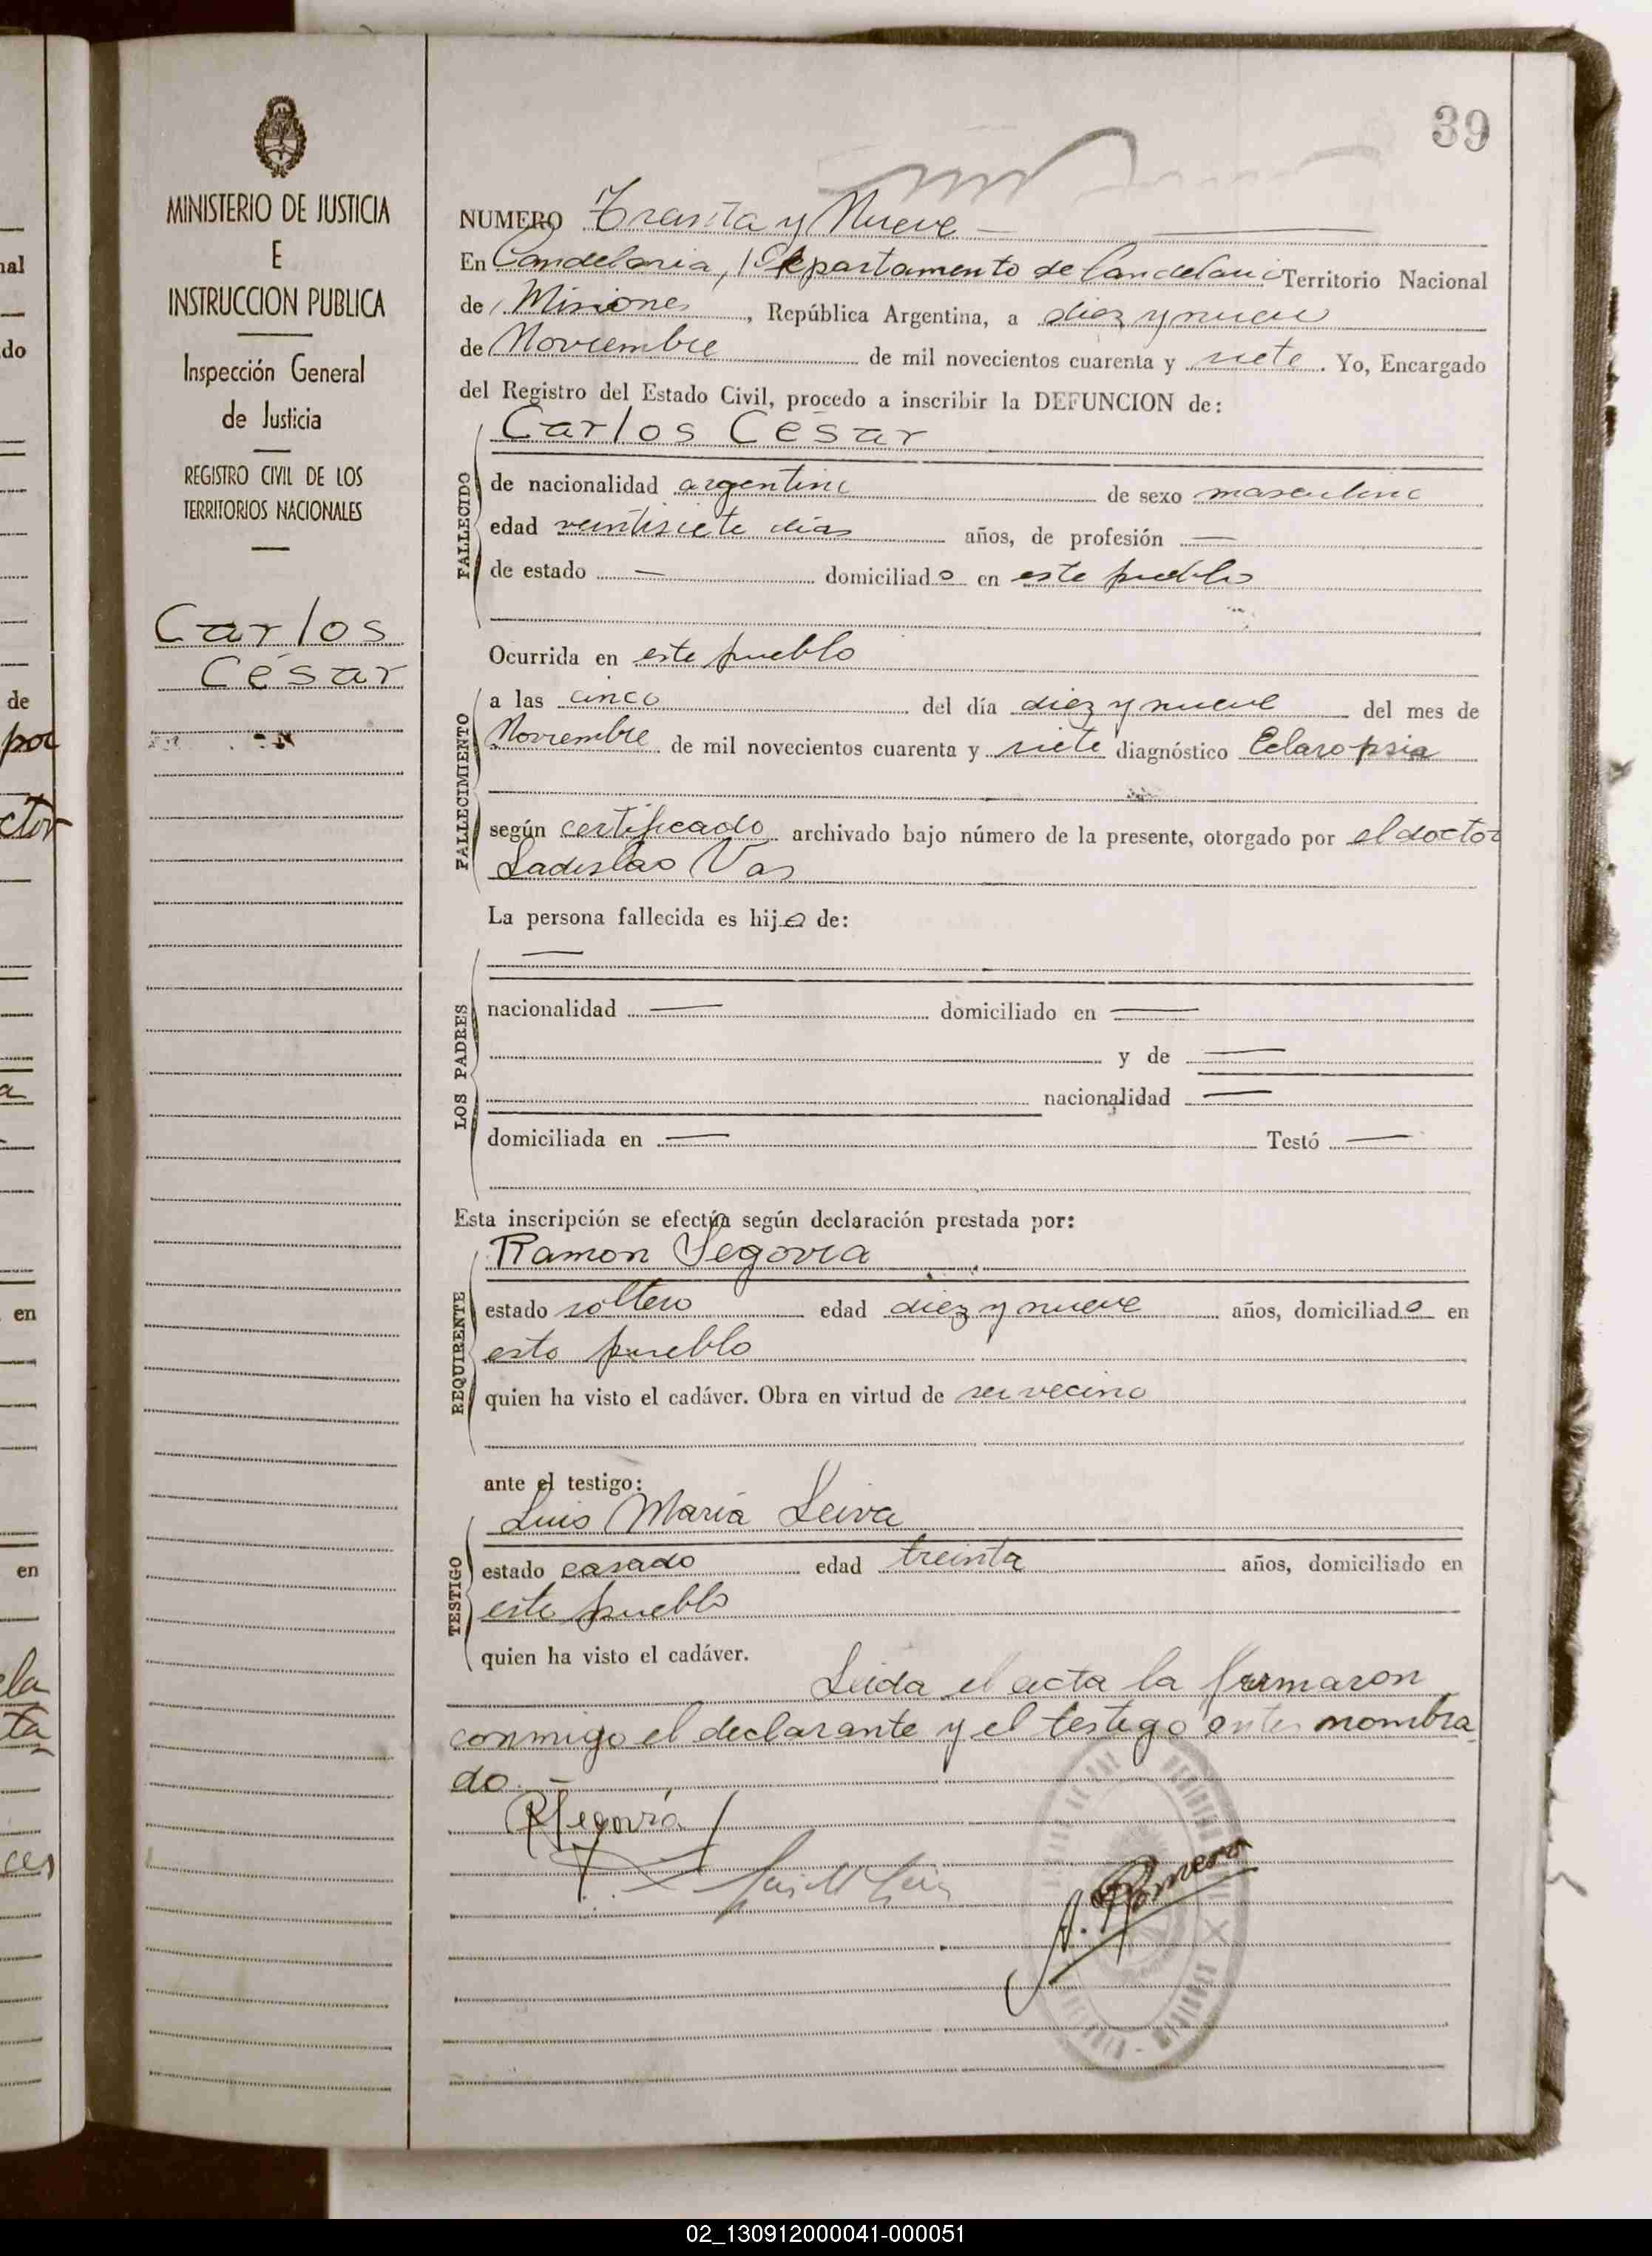 39
MINISTERIO DE JUSTICIA
E
INSTRUCCION PUBLICA
Inspección General
de Justicia
REGISTRO CIVIL DE LOS
TERRITORIOS NACIONALES
Carlos
César
NUMERO Treinta y Nueve
En Candelaria, Departamento de Candelaria Territorio Nacional
de Misiones, República Argentina, a diez y nueve
de Noviembre de mil novecientos cuarenta y siete. Yo, Encargado
del Registro del Estado Civil, procedo a inscribir la DEFUNCION de:
Carlos César
FALLECIDO
de nacionalidad argentino de sexo masculino
edad veintisiete días años, de profesión —
de estado — domiciliado en este pueblo
Ocurrida en este pueblo
FALLECIMIENTO
a las cinco del día diez y nueve del mes de
Noviembre de mil novecientos cuarenta y siete diagnóstico
según certificado archivado bajo número de la presente, otorgado por el doctor
Ladislao Vas
La persona fallecida es hijo de:
—
LOS PADRES
nacionalidad — domiciliado en —
y de —
nacionalidad —
domiciliada en — Testó —
Esta inscripción se efectúa según declaración prestada por:
Ramon Segovia
REQUIRENTE
estado soltero edad diez y nueve años, domiciliado en
este pueblo
quien ha visto el cadáver. Obra en virtud de ser vecino
ante el testigo:
Luis Maria Leiva
TESTIGO
estado casado edad treinta años, domiciliado en
este pueblo
quien ha visto el cadáver.
Leida el acta la firmaron
conmigo el declarante y el testigo antes nombra
do. —
RSegovia
A. Romero
nal
do
de
por
ctor
a
en
en
la
ta
02_130912000041-000051